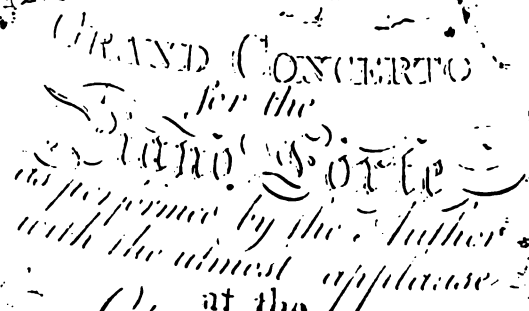 GRAND CONCERTO
for the
Piano Forte
as performed by the Author
with the utmost applause
at the